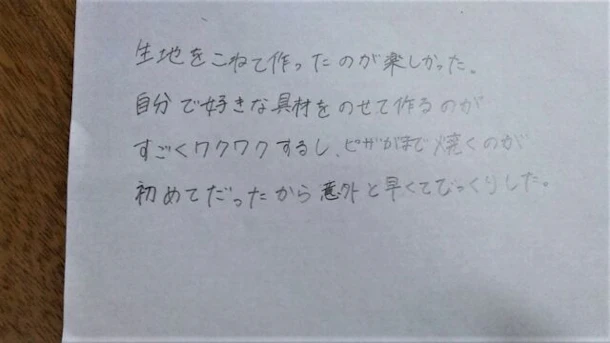 生地をこねて作ったのが楽しかった。
自分で好きな具材をのせて作るのが
すごくワクワクするし、ピザがまで焼くのが
初めてだったから意外と早くてびっくりした。